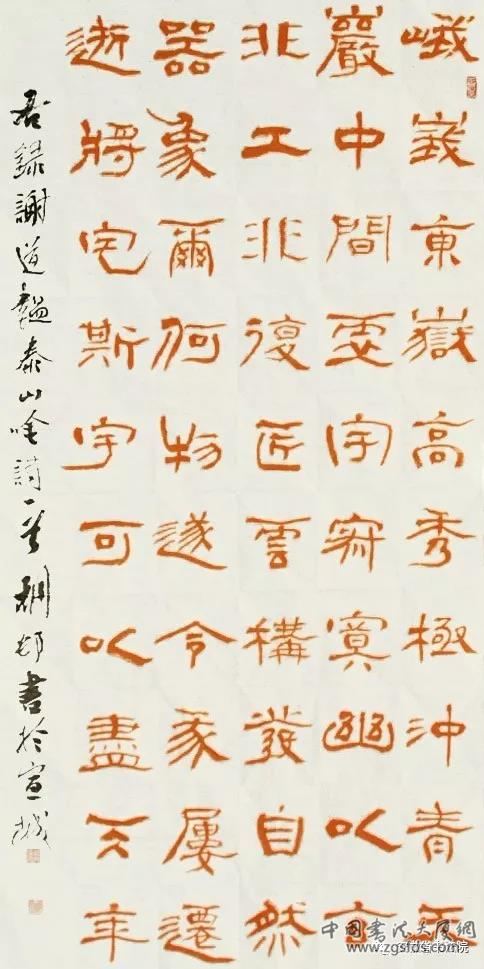 峨峨東嶽高秀極沖青天
巖中間虛宇寂寞幽以玄
非工非復匠雲構發自然
器象爾何物遂令我屢遷
逝將宅斯宇可以盡天年
錄謝道韞泰山吟詩一首邨書於宣城
中国书法大厦網
www.zgsfds.com